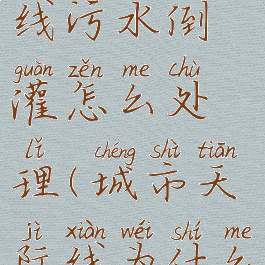 线污水倒
guàn zěn me chù
灌怎么处
lǐ chéng shì tiān
理(城市天
jì xiàn wéi shí me
际线为什么